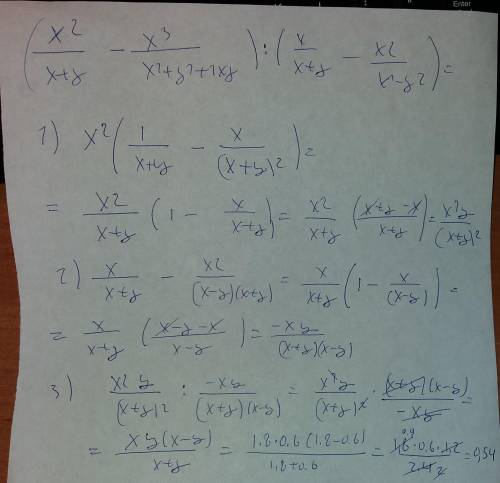 (x²/(x+y) − x³/(x²+y²+2xy)) : (x/(x+y) − x²/(x²−y²)) =
1) x²(1/(x+y) − x/(x+y)²) =
= x²/(x+y) (1 − x/(x+y)) = x²/(x+y) ((x+y−x)/(x+y)) = x²y/(x+y)²
2) x/(x+y) − x²/((x−y)(x+y)) = x/(x+y) (1 − x/(x−y)) =
= x/(x+y) ((x−y−x)/(x−y)) = −xy/((x+y)(x−y))
3) x²y/(x+y)² : −xy/((x+y)(x−y)) = x²y/(x+y)² · (x+y)(x−y)/(−xy) =
= xy(x−y)/(x+y) = 1.8·0.6(1.8−0.6)/(1.8+0.6) = 1.8·0.6·1.2/2.4 = 0,54
Enter